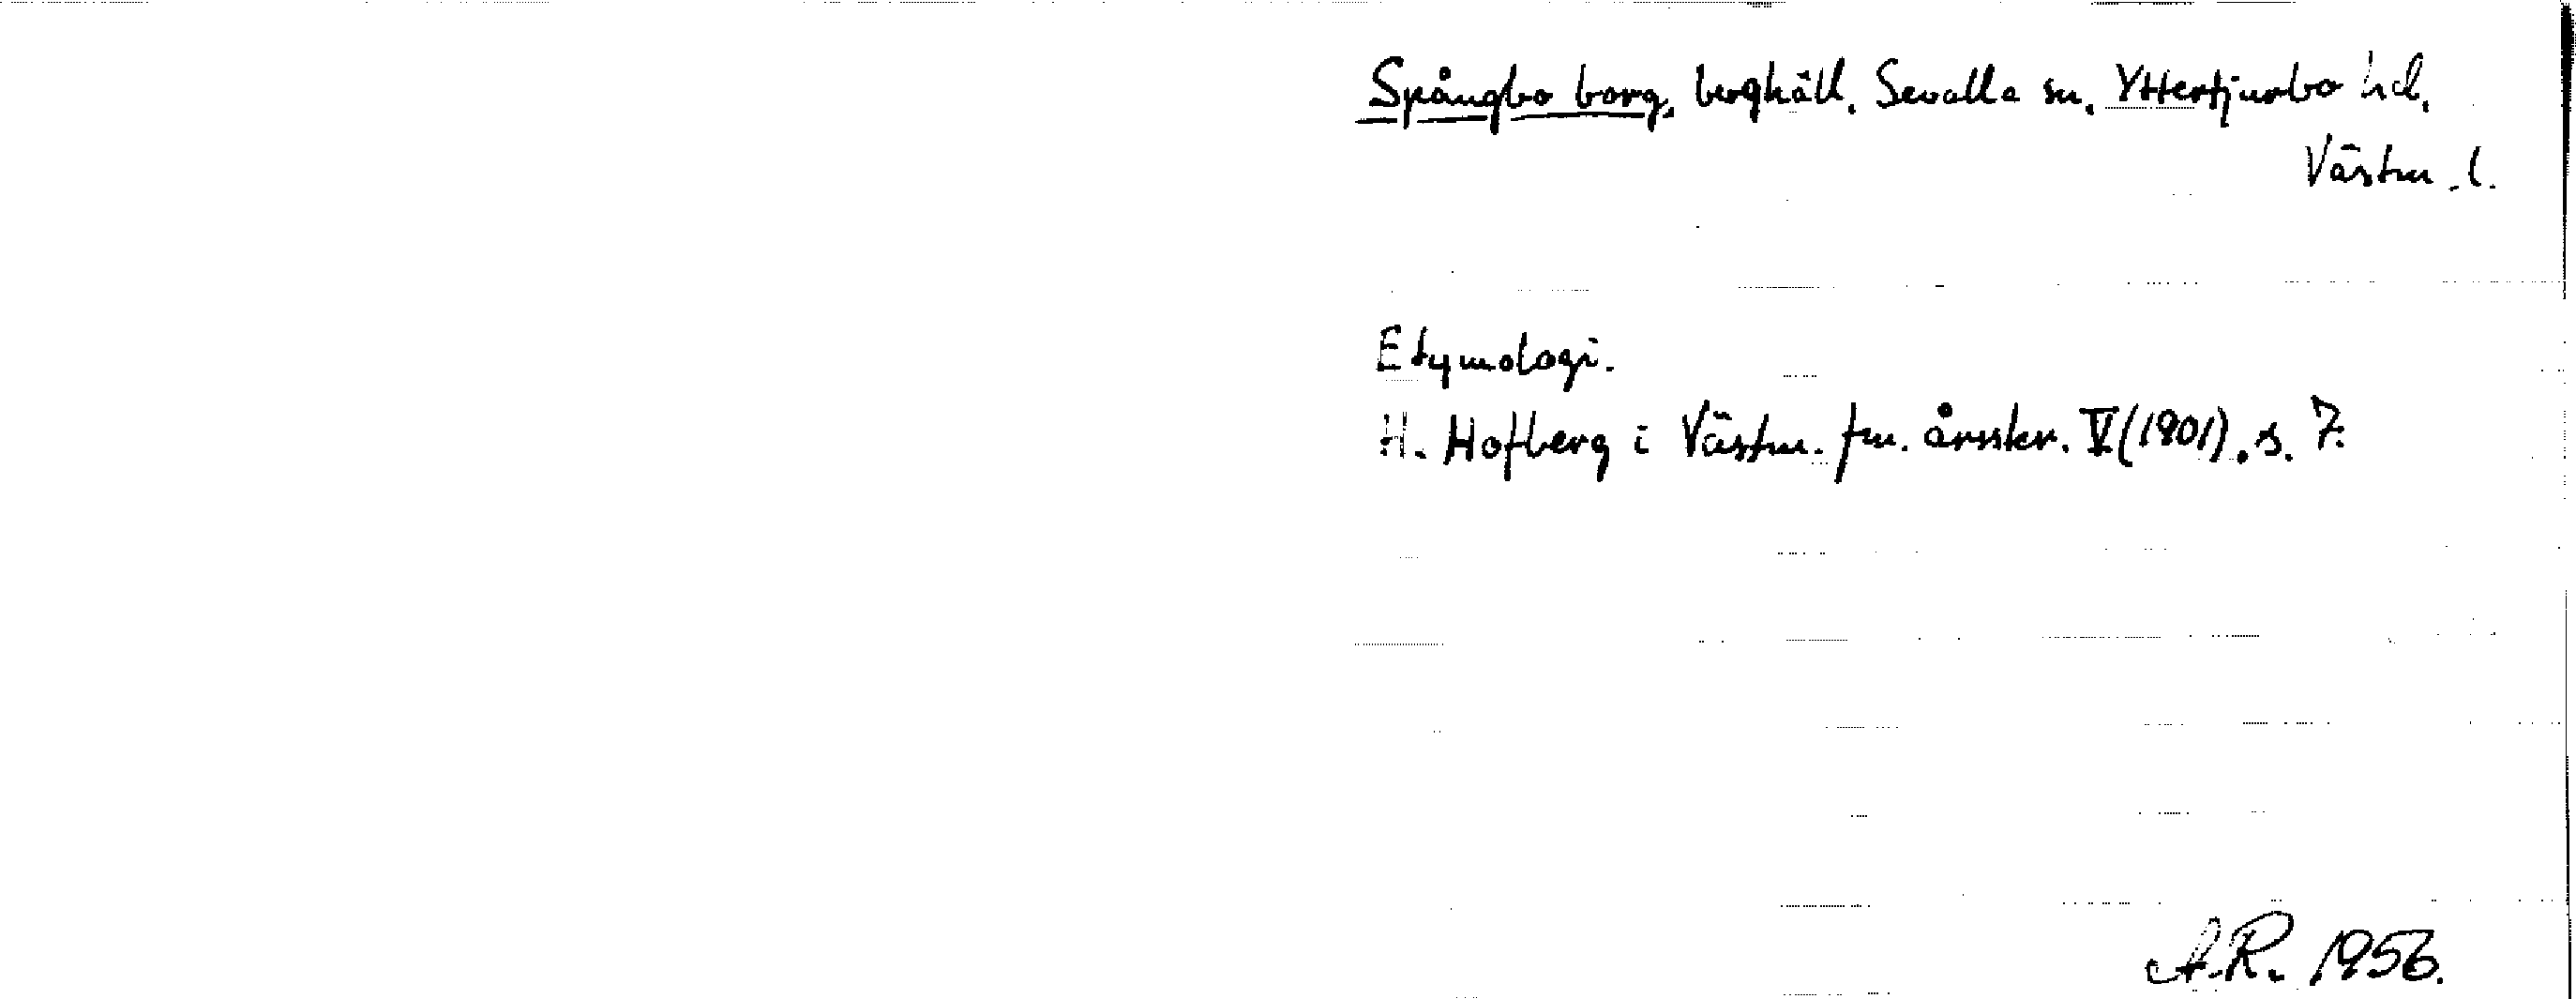 Spångbo borg, berghäll. Sevalla sn. Yttertjurbo hd.
Västm. l.
Etymologi.
H. Hofberg i Västm. fm. årsskr. V (1901). s. 7.
A.R. 1956.